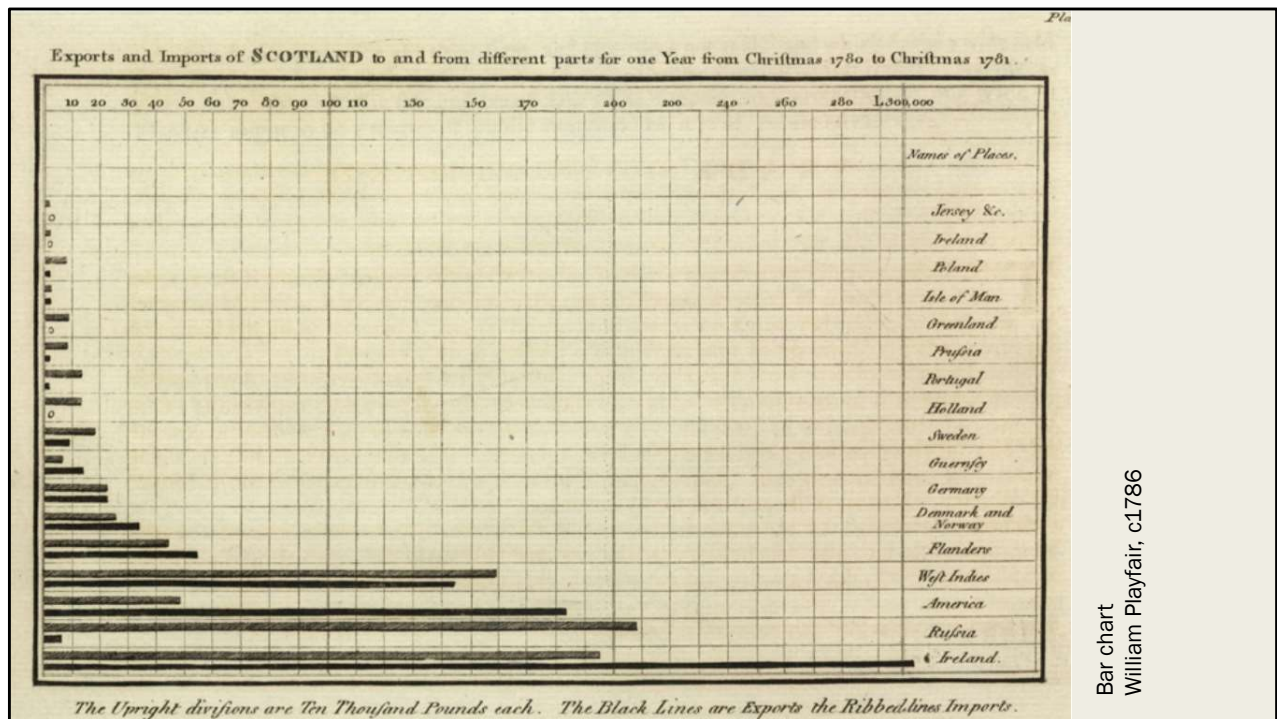 Pla
Exports and Imports of SCOTLAND to and from different parts for one Year from Chriſtmas 1780 to Chriſtmas 1781.
10 20 30 40 50 60 70 80 90 100 110 130 150 170 200 200 240 260 280 L300,000
Names of Places.
Jersey &c.
Ireland
Poland
Isle of Man
Greenland
Pruſsia
Portugal
Holland
Sweden
Guernſey
Germany
Denmark and
Norway
Flanders
Weſt Indies
America
Ruſsia
Ireland.
The Upright diviſions are Ten Thouſand Pounds each. The Black Lines are Exports the Ribbedlines Imports.
Bar chart
William Playfair, c1786